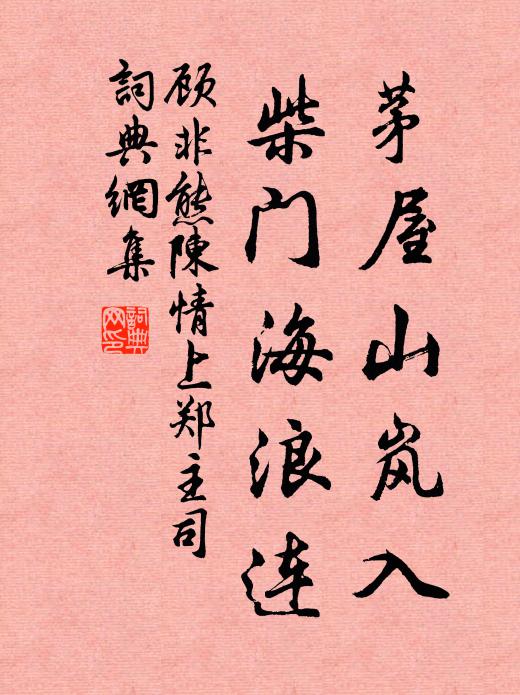 茅屋山岚入
柴门海浪连
顾非熊陳情上郑主司
詞典網集
詞典
网印